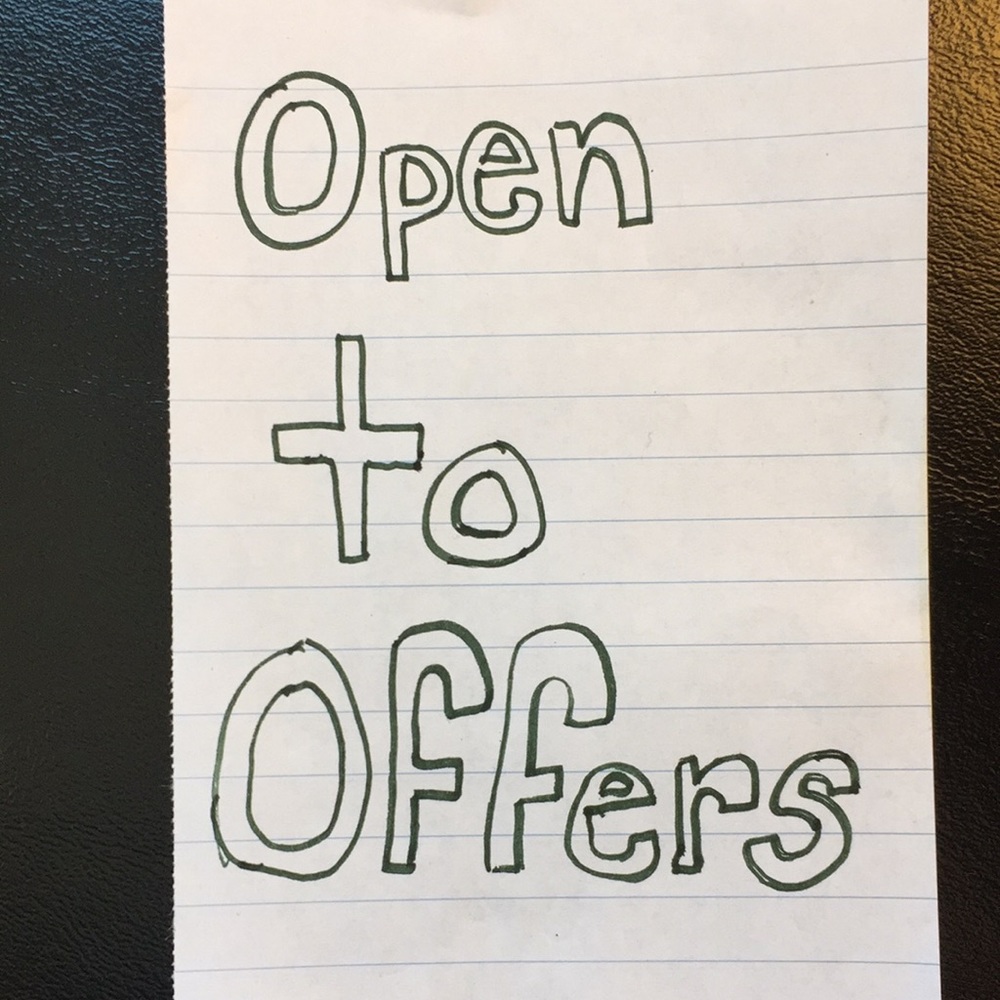 Open
to
Offers